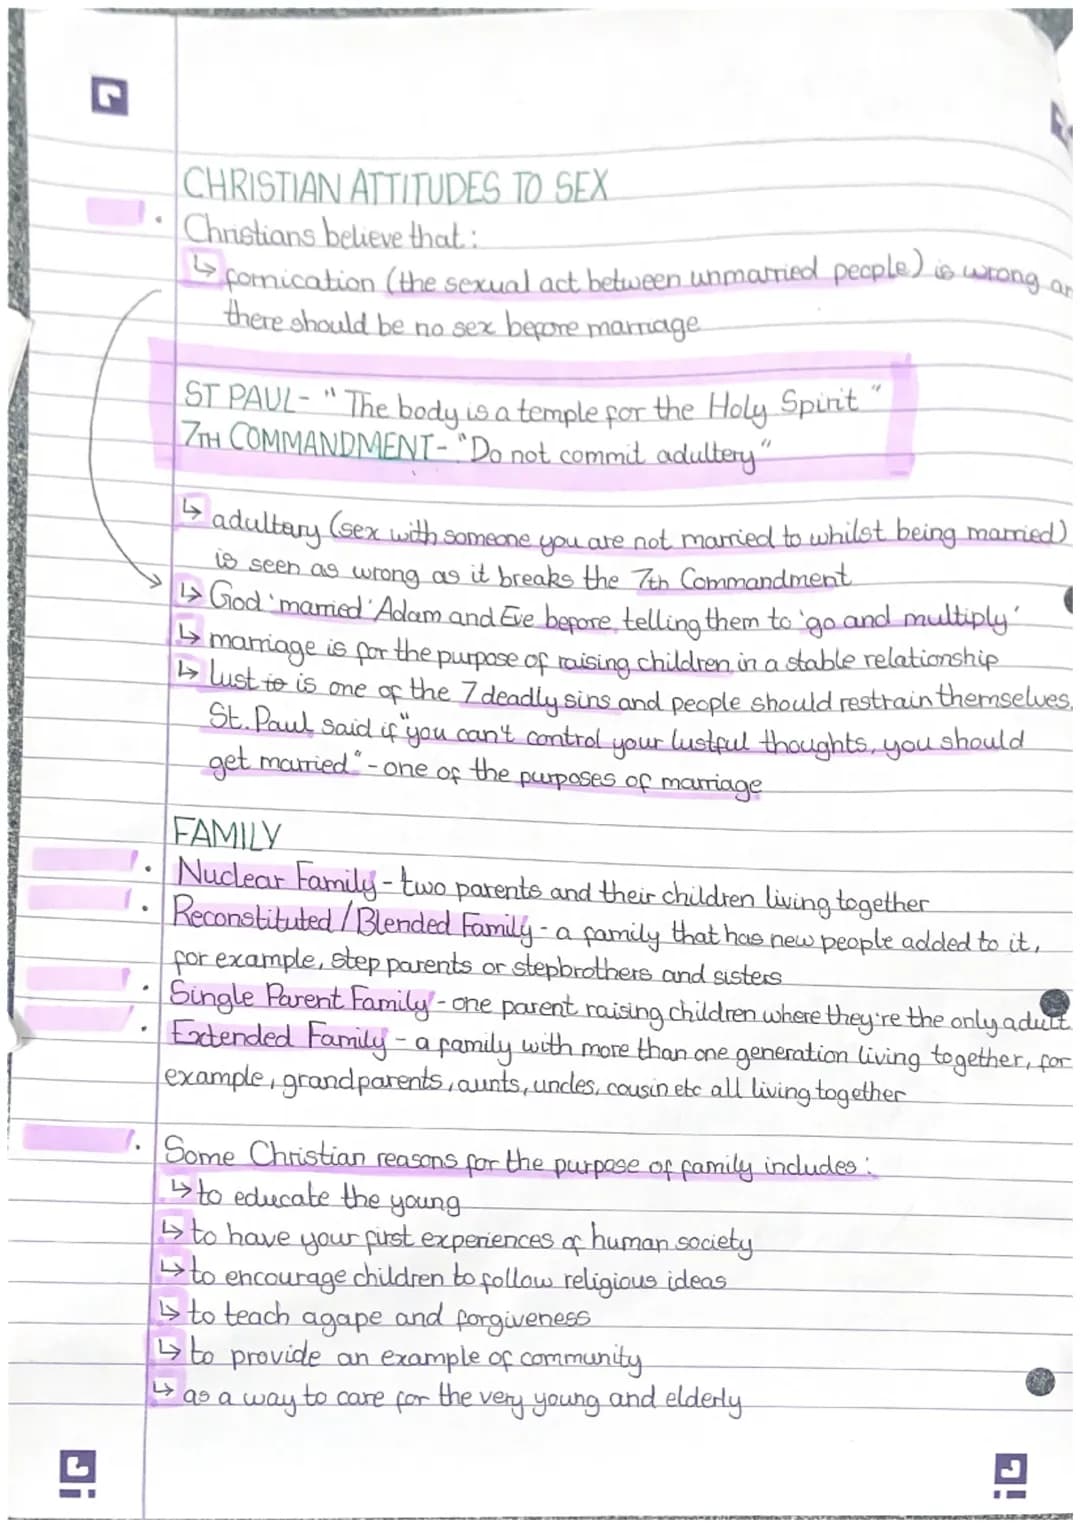 CHRISTIAN ATTITUDES TO SEX
• Christians believe that:
↳ fornication (the sexual act between unmarried people) is wrong an
there should be no sex before marriage
ST PAUL- "The body is a temple for the Holy Spirit"
7TH COMMANDMENT- "Do not commit adultery"
↳ adultery (sex with someone you are not married to whilst being married)
is seen as wrong as it breaks the 7th Commandment
↳ God 'married' Adam and Eve before telling them to 'go and multiply'
↳ marriage is for the purpose of raising children in a stable relationship
↳ lust to is one of the 7 deadly sins and people should restrain themselves.
St. Paul said if "you can't control your lustful thoughts, you should
get married" - one of the purposes of marriage
FAMILY
• Nuclear Family - two parents and their children living together
• Reconstituted / Blended Family - a family that has new people added to it,
for example, step parents or stepbrothers and sisters
• Single Parent Family - one parent raising children where they're the only adult
• Extended Family - a family with more than one generation living together, for
example, grandparents, aunts, uncles, cousin etc all living together
• Some Christian reasons for the purpose of family includes:
↳ to educate the young
↳ to have your first experiences of human society
↳ to encourage children to follow religious ideas
↳ to teach agape and forgiveness
↳ to provide an example of community
↳ as a way to care for the very young and elderly